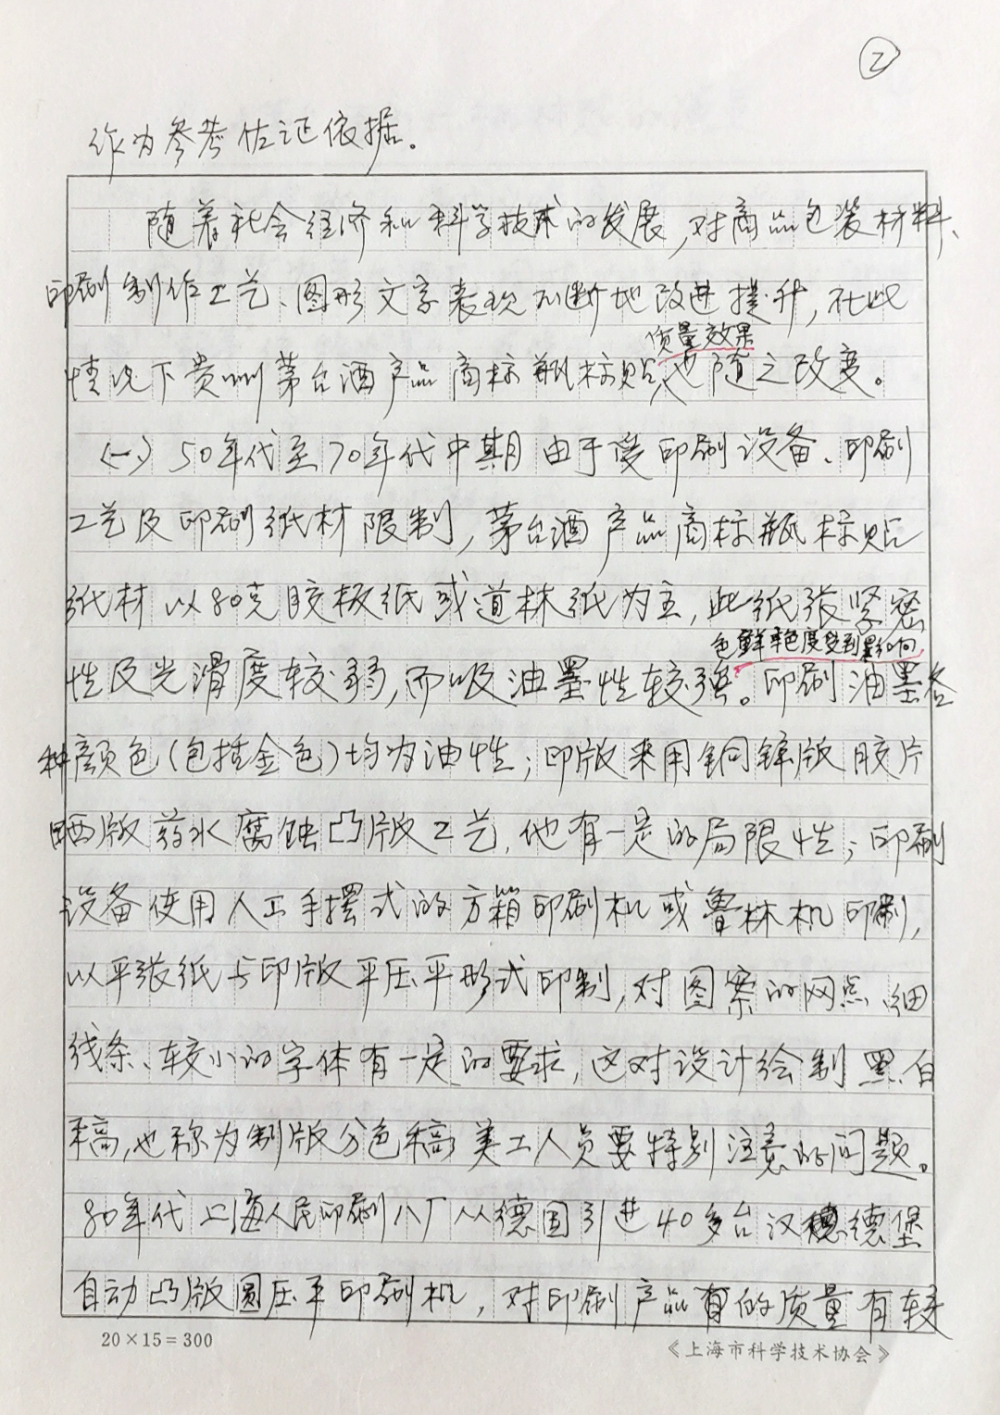 ②
作为参考佐证依据。
随着社会经济和科学技术的发展,对商品包装材料、
印刷制作工艺、图形文字表现不断地改进提升,在此
质量效果
情况下贵州茅台酒产品商标瓶标贴也随之改变。
(一)50年代至70年代中期由于受印刷设备、印刷
工艺及印刷纸材限制,茅台酒产品商标瓶标贴
纸材以80克胶板纸或道林纸为主,此纸张紧密
色鲜率色度受到影响
性及光滑度较弱,而吸油墨性较强。印刷油墨各
种颜色(包括金色)均为油性;印版采用铜锌版胶片
晒版药水腐蚀凸版工艺,他有一定的局限性;印刷
设备使用人工手摆式的方箱印刷机或鲁林机印刷,
以平张纸与印版平压平形式印制,对图案的网点、细
线条、较小的字体有一定的要求,这对设计绘制黑白
稿,也称为制版分色稿美工人员要特别注意的问题。
80年代上海人民印刷八厂从德国引进40多台汉德堡
自动凸版圆压平印刷机,对印刷产品的质量有较
20×15=300
《上海市科学技术协会》